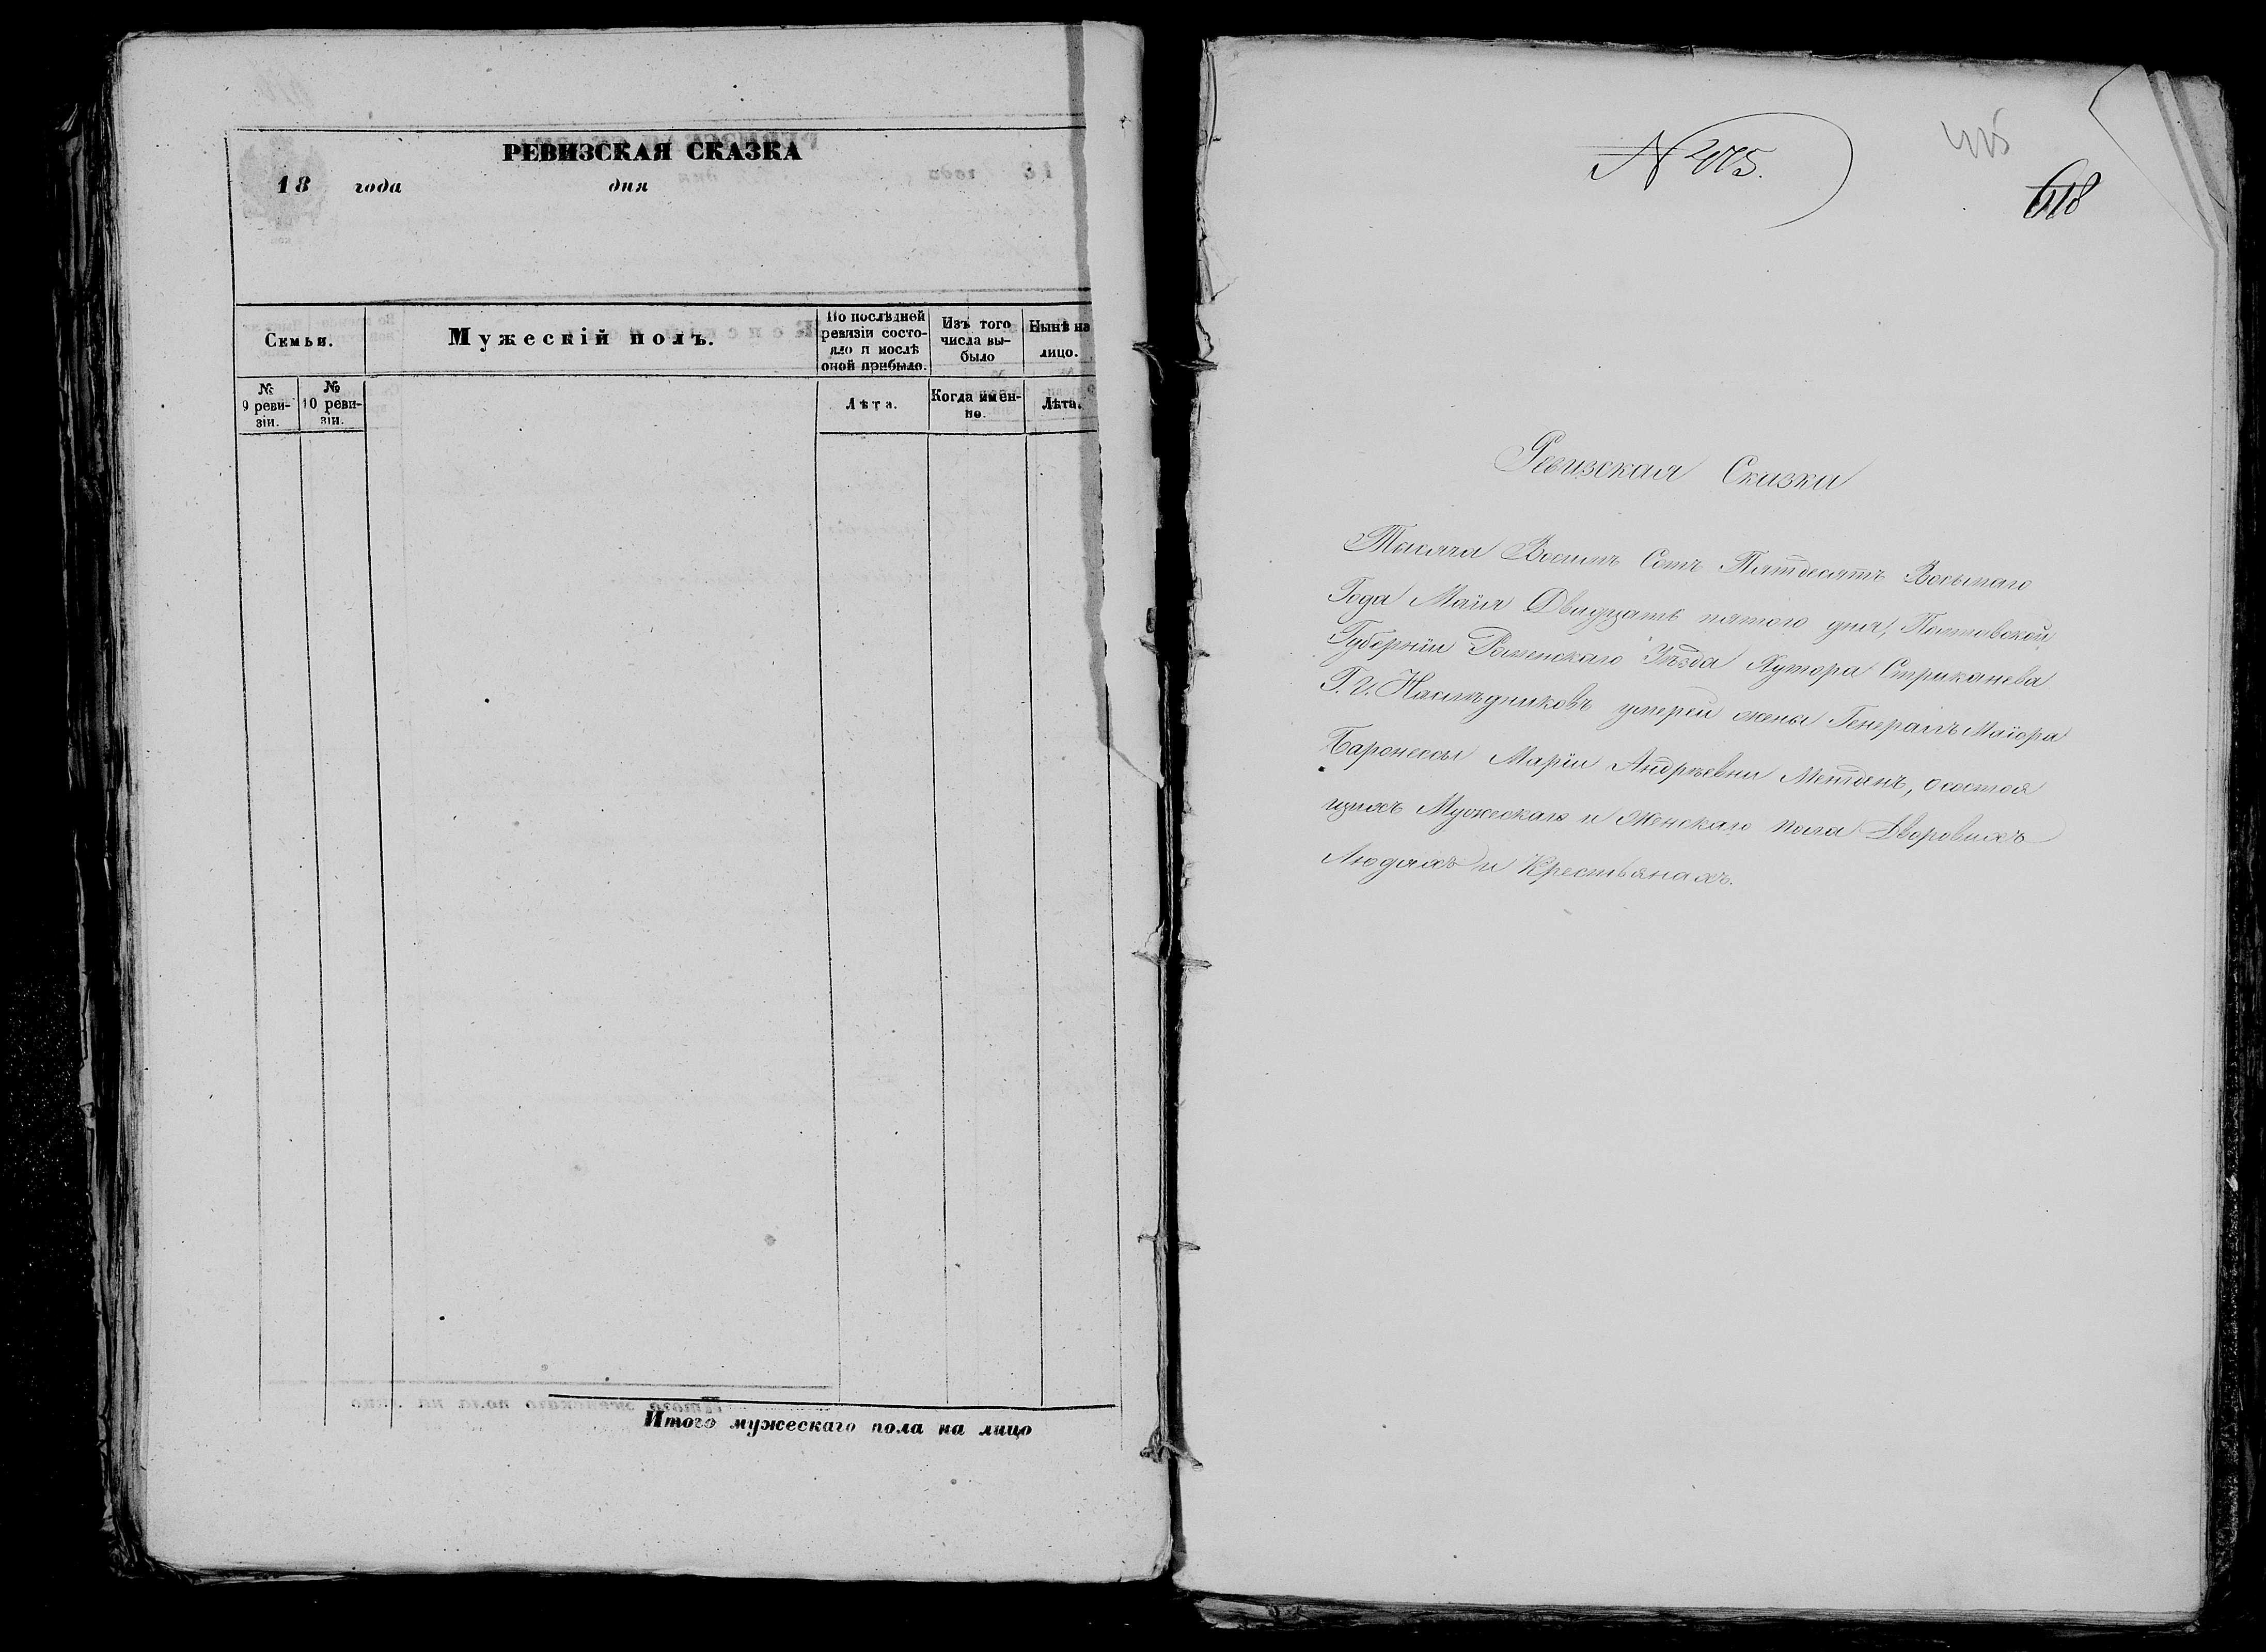 РЕВИЗСКАЯ СКАЗКА
18 года дня
Семьи.
Мужескій полъ.
По послѣдней ревизіи состо-
яло и послѣ оной прибыло.
Изъ того числа вы-
было
Нынѣ на лицо.
№ 9 реви-
зіи.
№ 10 реви-
зіи.
Лѣта.
Когда имен-
но.
Лѣта.
Итого мужескаго пола на лицо
618
Ревизская Сказка
Тысяча Восимъ Сотъ Пятдесятъ Восьмаго
Года Маія Двадцать пятого дня, Полтавской
Губерніи Роменскаго Уѣзда Хутора Стриканева
Г. г. Наслѣдниковъ умерей жены Генералъ Маіора
Баронессы Маріи Андрѣевни Менгденъ, о состоя
щихъ Мужескаго и Женскаго пола Дворовихъ
Людяхъ и Крестьянахъ.